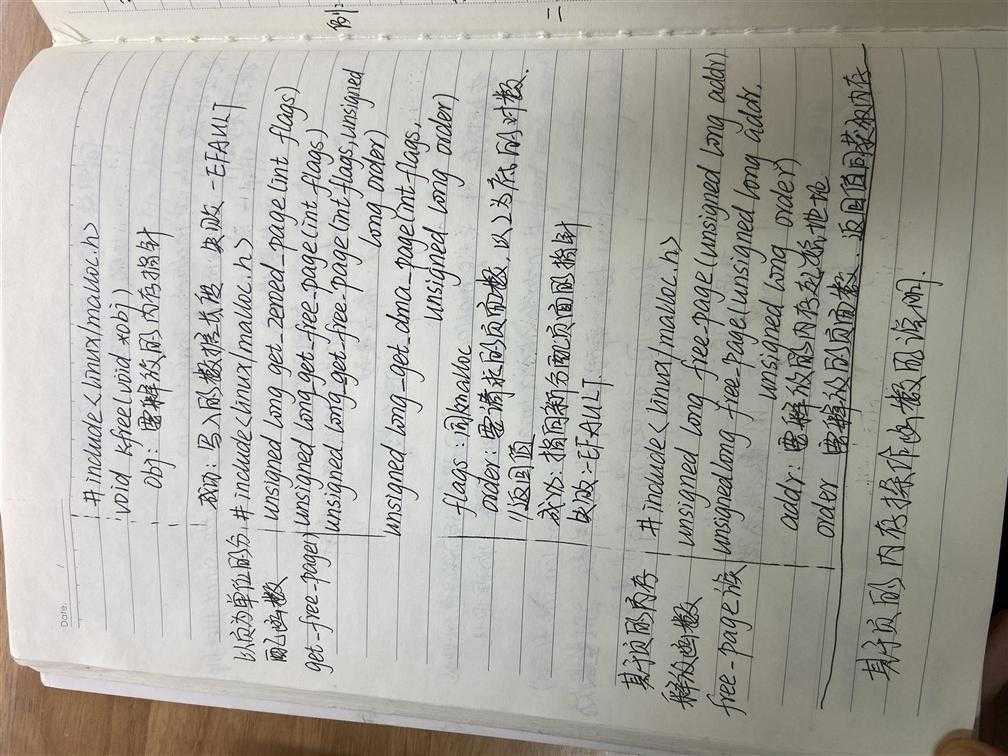 Date.
#include<linux/malloc.h>
void kfree(void *obj)
obj：要释放的内存指针
成功：写入的数据长度 失败 -EFAULT
以页为单位的分 #include<linux/malloc.h>
配函数 unsigned long get_zeroed_page(int flags)
get-free-page) unsigned long get-free-page(int flags)
unsigned long get-free-page(int flags, unsigned
long order)
unsigned long-get-dma_page(int flags,
unsigned long order)
flags：同kmalloc
order：要请求的页面数，以2为底的对数．
//返回值
成功：指向新分配页面的指针
失败：-EFAULT
基于页的内存 #include<linux/malloc.h>
释放函数 unsigned long free-page(unsigned long addr)
free-page 族 unsigned long free-page(unsigned long addr.
unsigned long order)
addr：要释放的内存起始地址
order 要释放的页面数．返回值同获取内存
基于页的内存操作函数的说明．